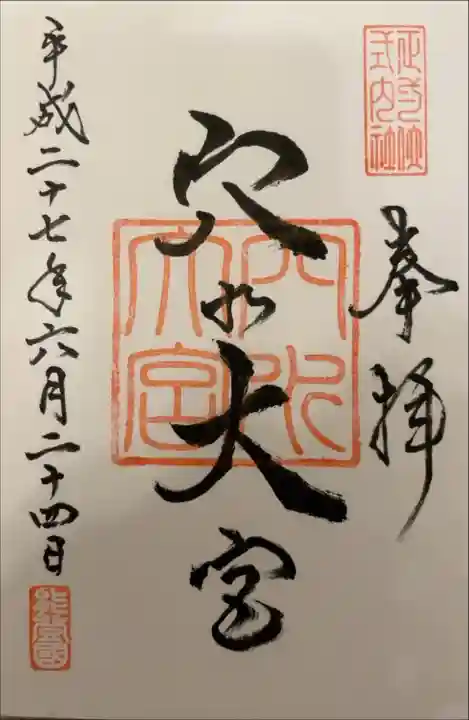 式内社
奉拝
穴水大宮
穴水
大宮
平成二十七年六月二十四日
能登國